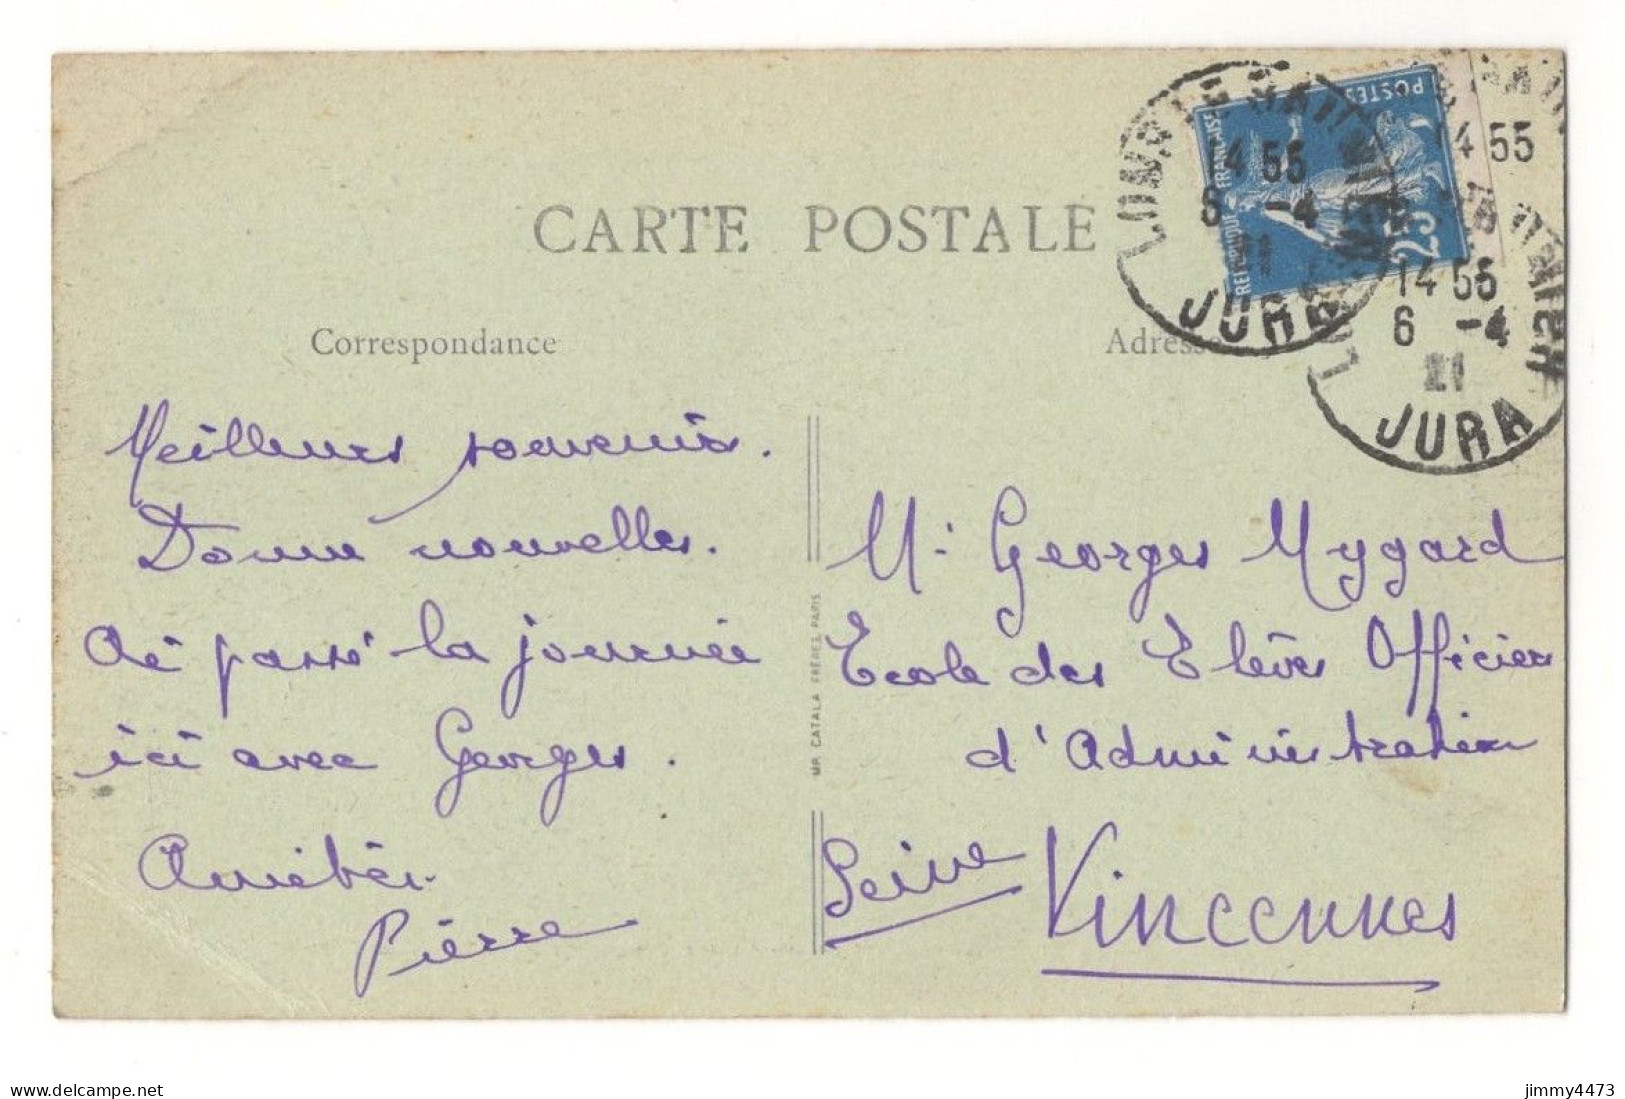 CARTE POSTALE
Correspondance
Adresse
POSTES
REPUBLIQUE FRANÇAISE
25
14 55
6 -4
21
JURA
14 55
14 55
6 -4
21
JURA
Meilleurs souvenirs.
Donne nouvelles.
Ai passé la journée
ici avec Georges.
Amitiés.
Pierre
MP. CATALA FRÈRES, PARIS
M. Georges Mygard
Ecole des Elèves Officiers
d'Administration
Seine Vincennes
www.delcampe.net
jimmy4473